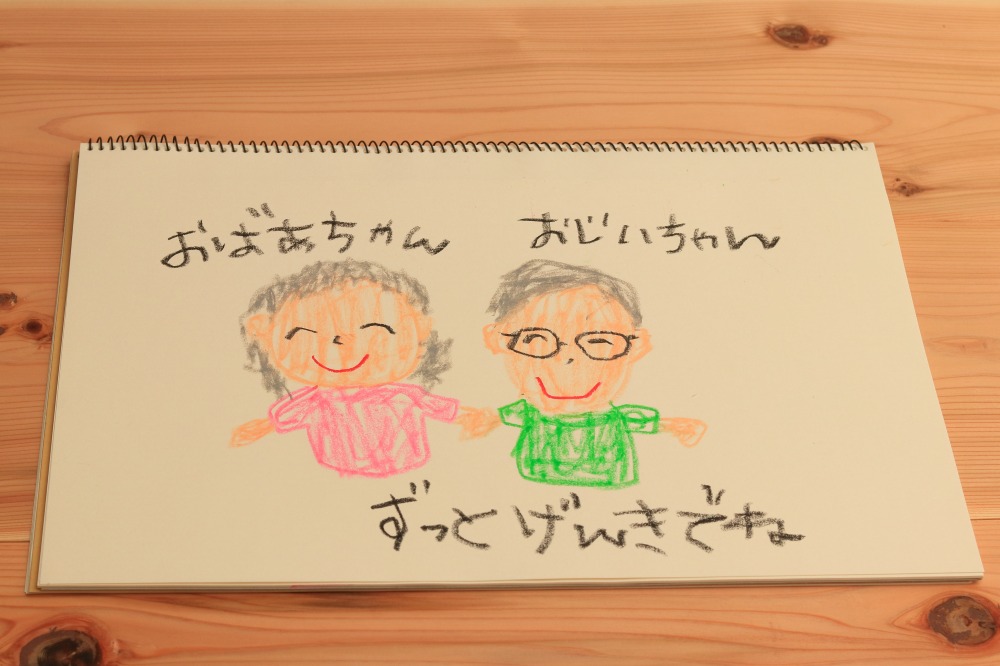 おばあちゃん おじいちゃん
ずっとげんきでね